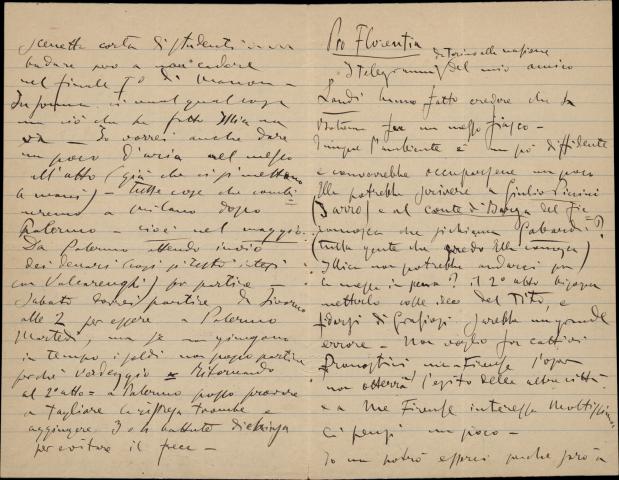 scenetta corta di studenti
badare però a non cadere
nel finale Iº di Manon –
In somma ci vuol qual cosa
in ciò che ha fatto Illica non
va – Io vorrei anche dare
un poco d'aria nel mezzo
all'atto (già che ci si mettano
le mani) – tutte cose che combi=
neremo a Milano dopo
Palermo – cioè nel maggio.
Da Palermo attendo invio
dei denari (così si restò intesi
con Valcarenghi) per partire –
Sabato dovrei partire da Livorno
alle 2 per essere a Palermo
Martedì, ma se non giungono
in tempo i soldi non posso partire
perchè verdeggio = Ritornando
al 2º atto = a Palermo posso provare
a tagliare la ripresa trombe e
aggiungere 3 o 4 battute di chiusa
per evitare il freddo –
Pro Florentia
I telegrammi da Torino alla nazione del mio amico
Landi hanno fatto credere che la
Bohème fece un mezzo fiasco –
Dunque l'ambiente è un po' diffidente
e converrebbe occuparsene un poco
Ella potrebbe scrivere a Giulio Piccini
(Jarro) e al conte di Barga del Fie=
ramosca che si chiama Gabardi (?)
(tutta gente che credo Ella conosca)
Illica non potrebbe andarci per
la messa in scena? il 2º atto bisogna
metterlo colle idee del Tito, e
fidarsi di sarebbe un grande
errore – Non voglio far cattivi
Pronostici ma a Firenze l'opera
non otterrà l'esito delle altre città
e a me Firenze interessa moltissimo
Ci pensi un poco –
Io non potrò esserci perchè sarò a